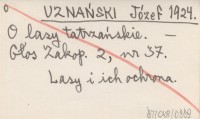 o UZNAŃSKI Józef 1924.
O lasy tatrzańskie. —
Głos Zakop. 2, nr 37.
Lasy i ich ochrona.